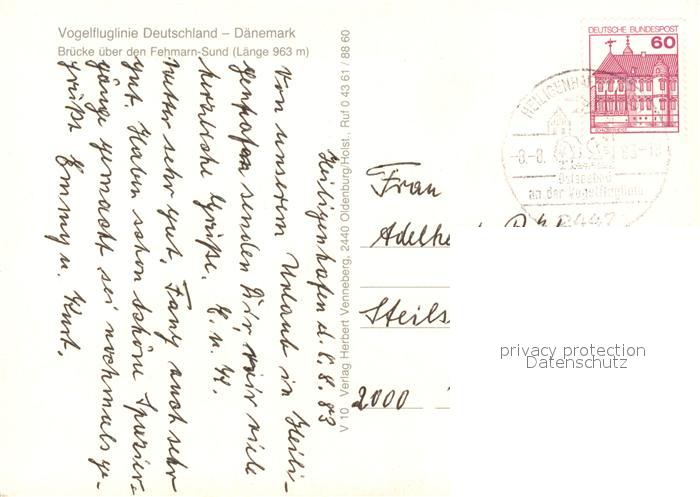 Vogelfluglinie Deutschland – Dänemark
Brücke über den Fehmarn-Sund (Länge 963 m)
Heiligenhafen d. 6.8.83
Von unserem Urlaub in Heili-
genhafen senden Dir, wir viele
herzliche Grüße. E. u. K.
Wetter sehr gut, Fany auch sehr
gut. Haben schon schöne Spazier-
gänge gemacht sei nochmals ge-
grüßt Emmy u. Kurt.
V 10 Verlag Herbert Venneberg, 2440 Oldenburg/Holst., Ruf 0 43 61 / 88 60
DEUTSCHE BUNDESPOST
60
HEILIGENHAF
-8.-8. 83-18
Ostseebad
an der Vogelfluglinie
2447
Frau
Adelhe
Steils
2000
privacy protection
Datenschutz